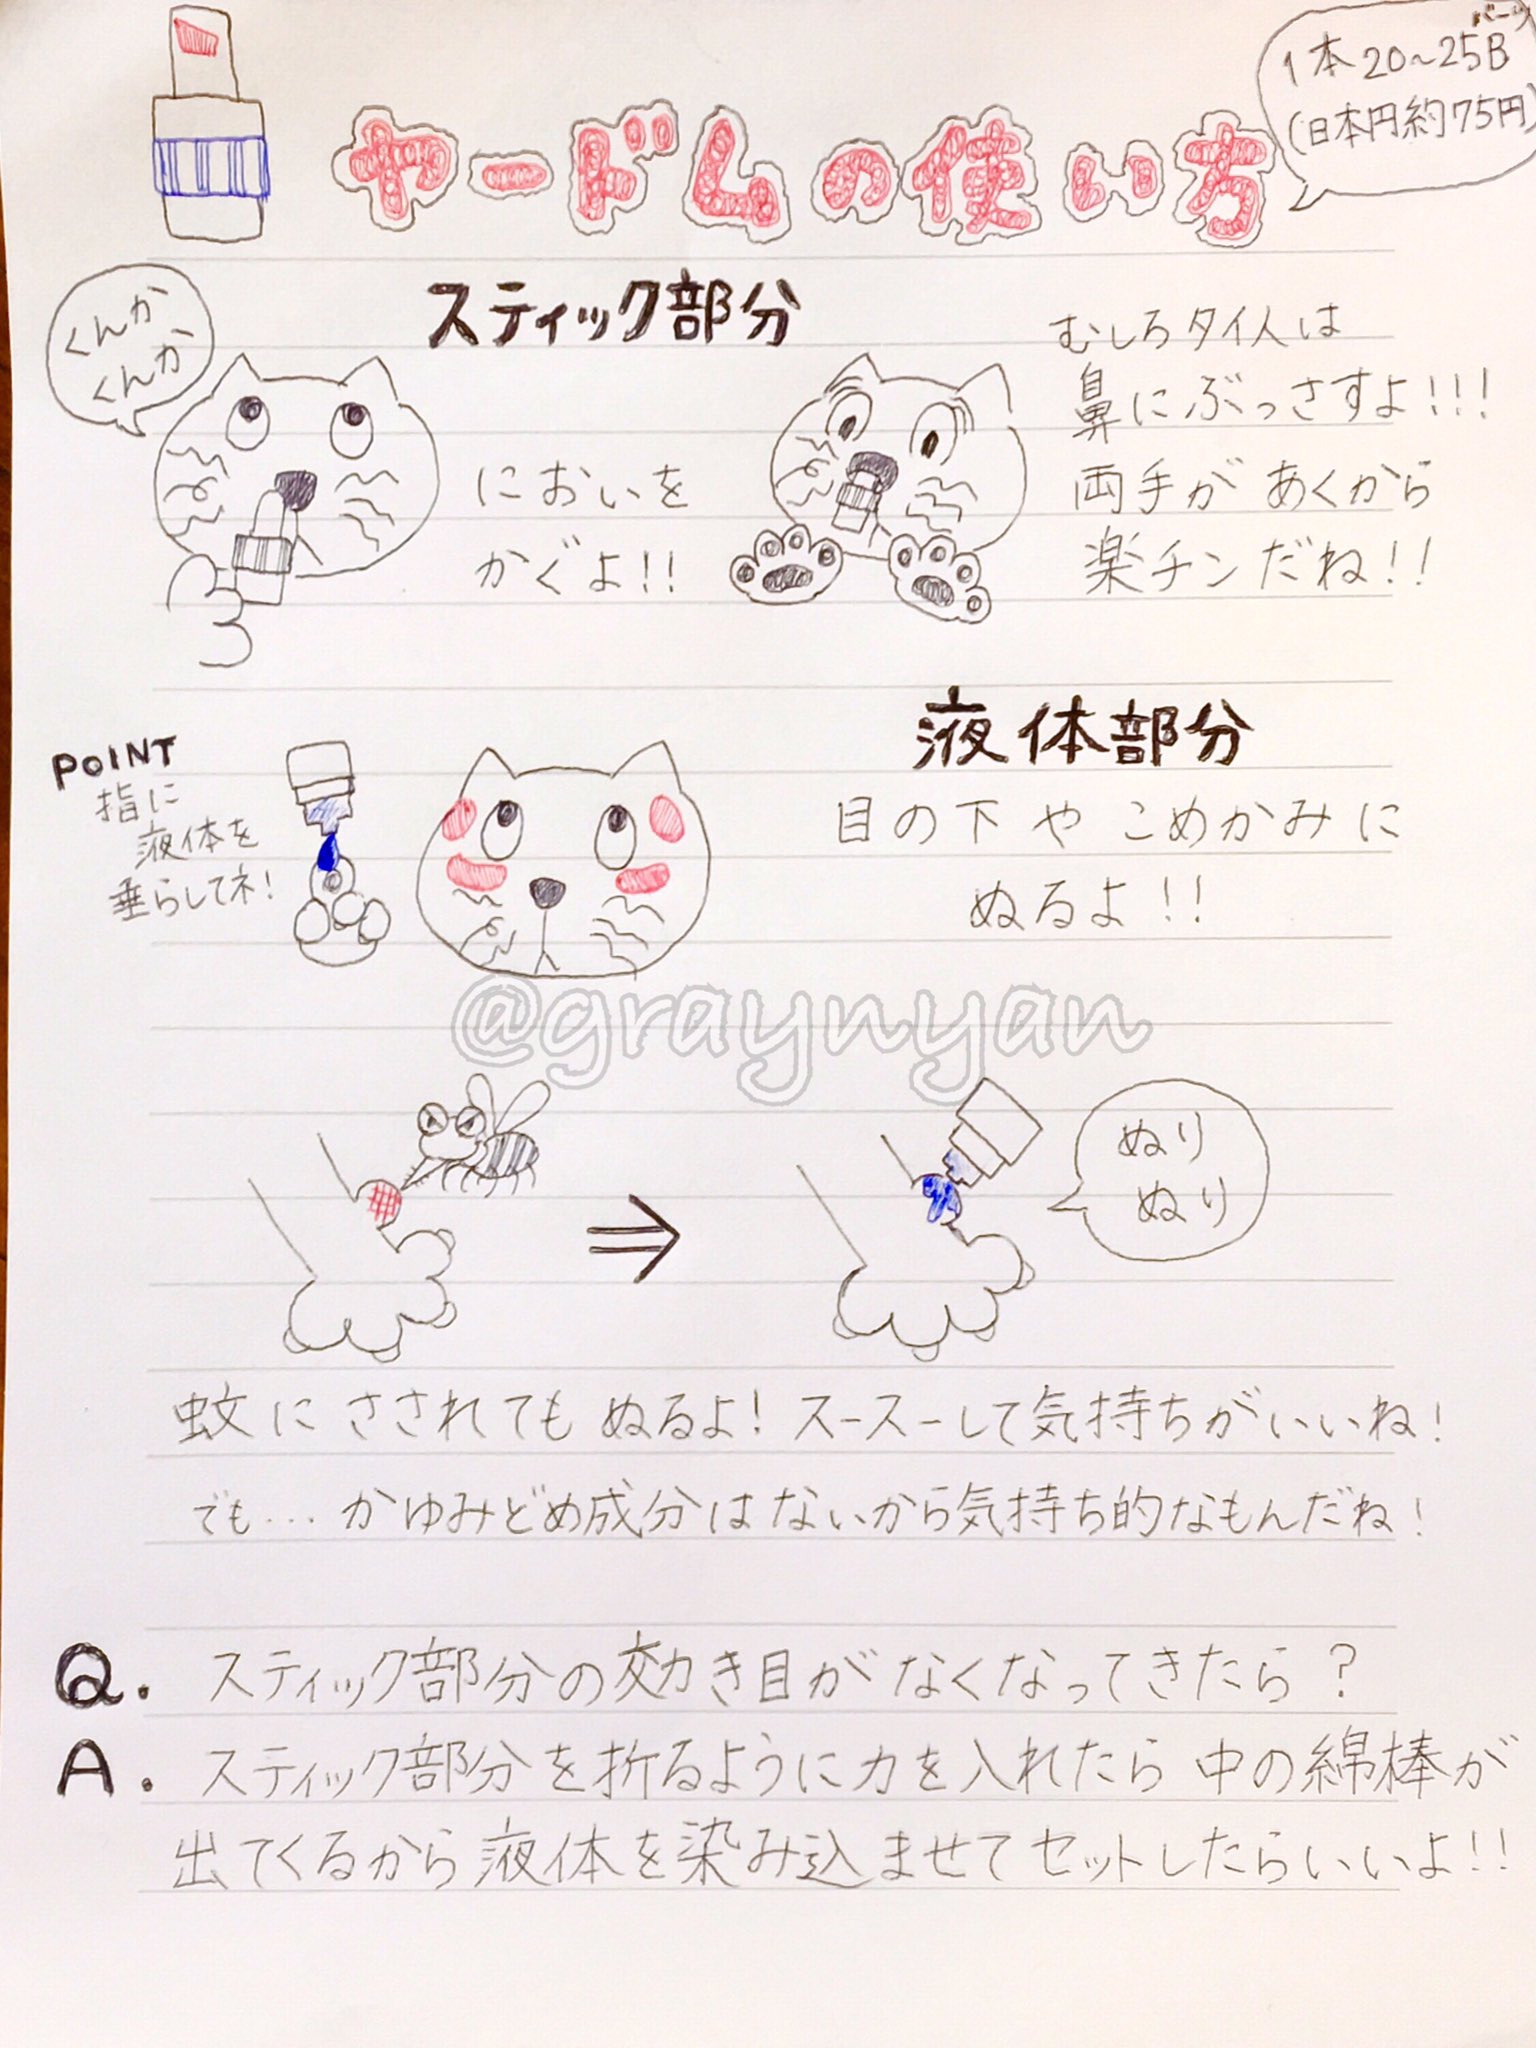 ヤードムの使い方
1本20~25B
バーツ
(日本円約75円)
スティック部分
くんか
くんか
においを
かぐよ!!
むしろタイ人は
鼻にぶっさすよ!!!
両手があくから
楽チンだね!!
液体部分
POINT
指に
液体を
垂らしてネ!
目の下やこめかみに
ぬるよ!!
@graynyan
ぬり
ぬり
蚊にさされてもぬるよ!スースーして気持ちがいいね!
でも…かゆみどめ成分はないから気持ち的なもんだね!
Q.スティック部分の効き目がなくなってきたら?
A.スティック部分を折るように力を入れたら中の綿棒が
出てくるから液体を染み込ませてセットしたらいいよ!!